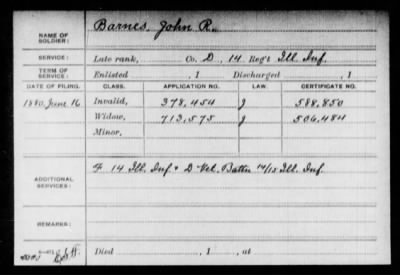 NAME OF SOLDIER: Barnes, John R.
SERVICE: Late rank, Co. D, 14 Reg't Ill. Inf.
TERM OF SERVICE: Enlisted , 1 Discharged , 1
DATE OF FILING. CLASS. APPLICATION NO. LAW. CERTIFICATE NO.
1880, June 16 Invalid, 378,454 J 588,850
Widow, 713,575 J 506,484
Minor,
ADDITIONAL SERVICES: F 14 Ill. Inf + D Vet. Battn 14/15 Ill. Inf.
REMARKS:
Died , 1 , at